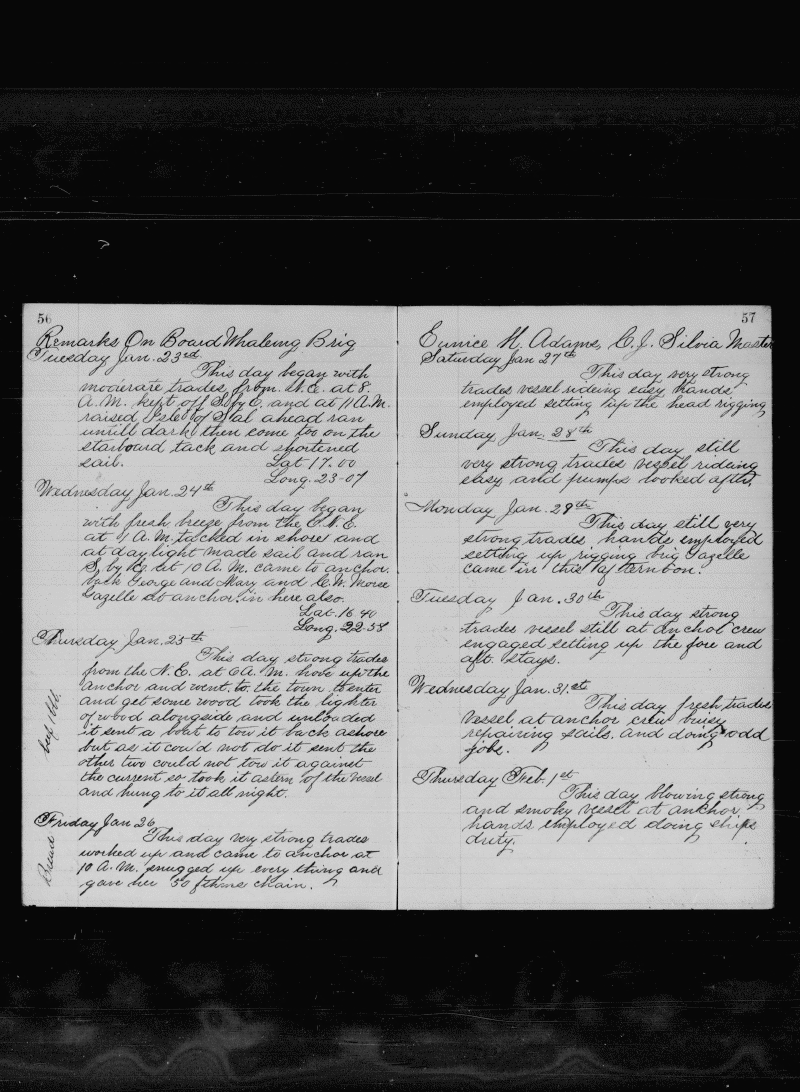 56
Remarks On Board Whaleing Brig
Tuesday Jan. 23rd
This day began with
moderate trades, from N.E. at 8.
A.M. kept off S. by E. and at 11 A.M.
raised Isle of Sal ahead ran
untill dark then come too on the
starboard tack and shortened
sail. Lat 17.00
Long. 23-07
Wednesday Jan. 24th
This day began
with fresh breeze from the E.N.E.
at 1 A.M. tacked in shore and
at daylight made sail and ran
S. by E. at 10 A.M. came to anchor.
bark George and Mary and C.W. Morse
Gazelle at anchor in here also.
Lat. 16 40
Long. 22-55
Thursday Jan. 25th
This day strong trades
from the N.E. at 6 A.M. hove up the
anchor and went to the town to enter
and get some wood took the lighter
of wood alongside and unloaded
it sent a boat to tow it back ashore
but as it cou'd not do it sent the
other two could not tow it against
the current so took it astern of the vessel
and hung to it all night.
beef 1 bbl.
Friday Jan 26
This day very strong trades
worked up and came to anchor at
10 A.M. snugged up every thing and
gave her 50 fthms chain.
Bread
57
Eunice H. Adams, C.J. Silvia Master
Saturday Jan 27th
This day very strong
trades vessel rideing easy hands
employed setting up the head rigging
Sunday Jan. 28th
This day still
very strong trades vessel riding
easy and pumps looked after,
Monday Jan. 29th
This day still very
strong trades hands employed
setting up rigging brig Gazelle
came in this afternoon.
Tuesday Jan. 30th
This day strong
trades vessel still at anchor crew
engaged setting up the fore and
aft. stays.
Wednesday Jan. 31.st
This day fresh trades
vessel at anchor crew busy
repairing sails. and doing odd
jobs.
Thursday Feb. 1st
This day blowing strong
and smoky vessel at anchor
hands employed doing ships
duty.